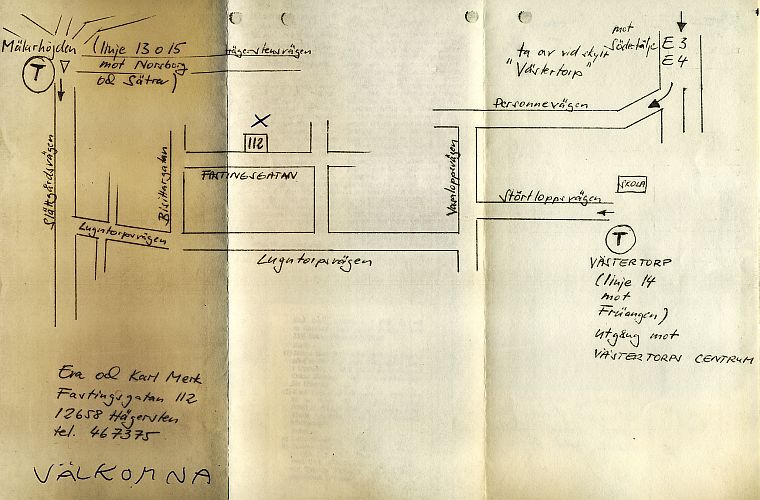 Mälarhöjden
(linje 13 o 15
mot Norsborg
och Sätra)
T
Hägerstensvägen
ta av vid skylt
"Västertorp"
mot
Södertälje
E3
E4
Personnevägen
Slättgårdsvägen
Bisittargatan
112
FASTINGSGATAN
Vamloppsvägen
SKOLA
Störtloppsvägen
Lugntorpsvägen
Lugntorpsvägen
T
VÄSTERTORP
(linje 14
mot
Fruängen)
utgång mot
VÄSTERTORPS CENTRUM
Eva och Karl Merk
Fastingsgatan 112
12658 Hägersten
tel. 467375
VÄLKOMNA